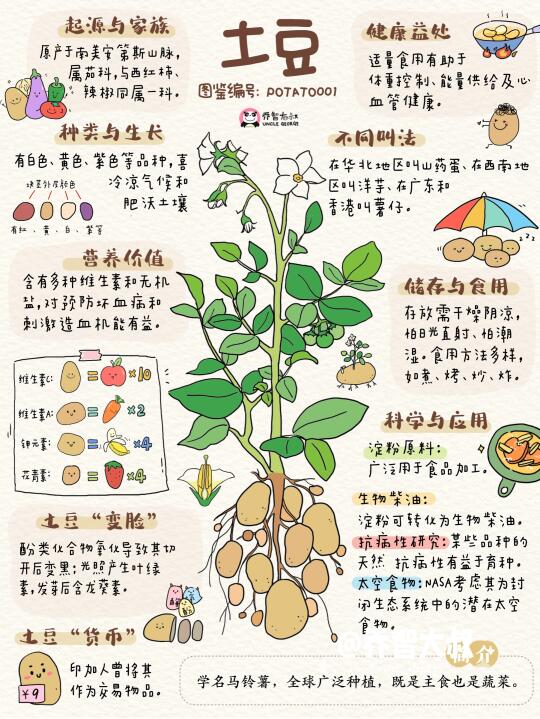 土豆
图鉴编号: POTATO001
乔智大叔
UNCLE GEORGE
起源与家族
原产于南美安第斯山脉,
属茄科,与西红柿、
辣椒同属一科。
健康益处
适量食用有助于
体重控制、能量供给及心
血管健康。
种类与生长
有白色、黄色、紫色等品种,喜
冷凉气候和
肥沃土壤
块茎外层颜色
有红、黄、白、紫等
不同叫法
在华北地区叫山药蛋、在西南地
区叫洋芋、在广东和
香港叫薯仔。
zzz
营养价值
含有多种维生素和无机
盐,对预防坏血病和
刺激造血机能有益。
维生素C: = ×10
维生素A: = ×2
钾元素: = ×4
花青素: = ×4
储存与食用
存放需干燥阴凉,
怕日光直射、怕潮
湿。食用方法多样,
如煮、烤、炒、炸。
科学与应用
淀粉原料:
广泛用于食品加工。
生物柴油:
淀粉可转化为生物柴油。
抗病性研究:某些品种的
天然 抗病性有益于育种。
太空食物:NASA考虑其为封
闭生态系统中的潜在太空
食物。
土豆“变脸”
酚类化合物氧化导致其切
开后变黑;光照产生叶绿
素,发芽后含龙葵素。
土豆“货币”
印加人曾将其
作为交易物品。
¥9
介
学名马铃薯,全球广泛种植,既是主食也是蔬菜。